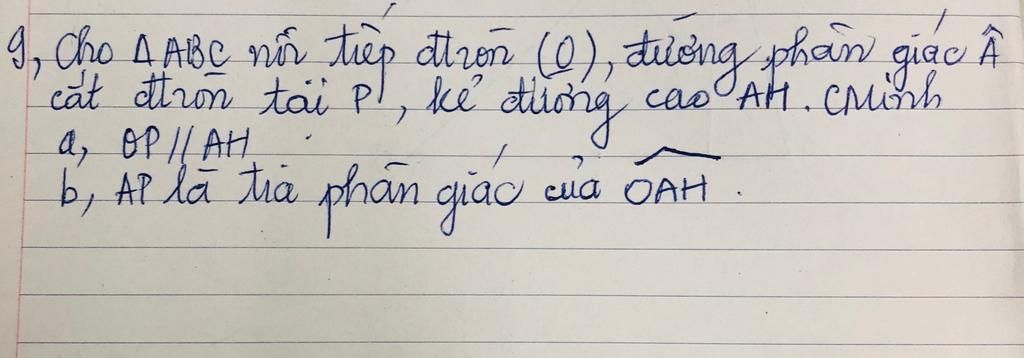 9, Cho Δ ABC nội tiếp đtròn (O), đường phân giác Â
cắt đtròn tại P, kẻ đường cao AH. CMinh
a, OP // AH
b, AP là tia phân giác của \widehat{OAH}.